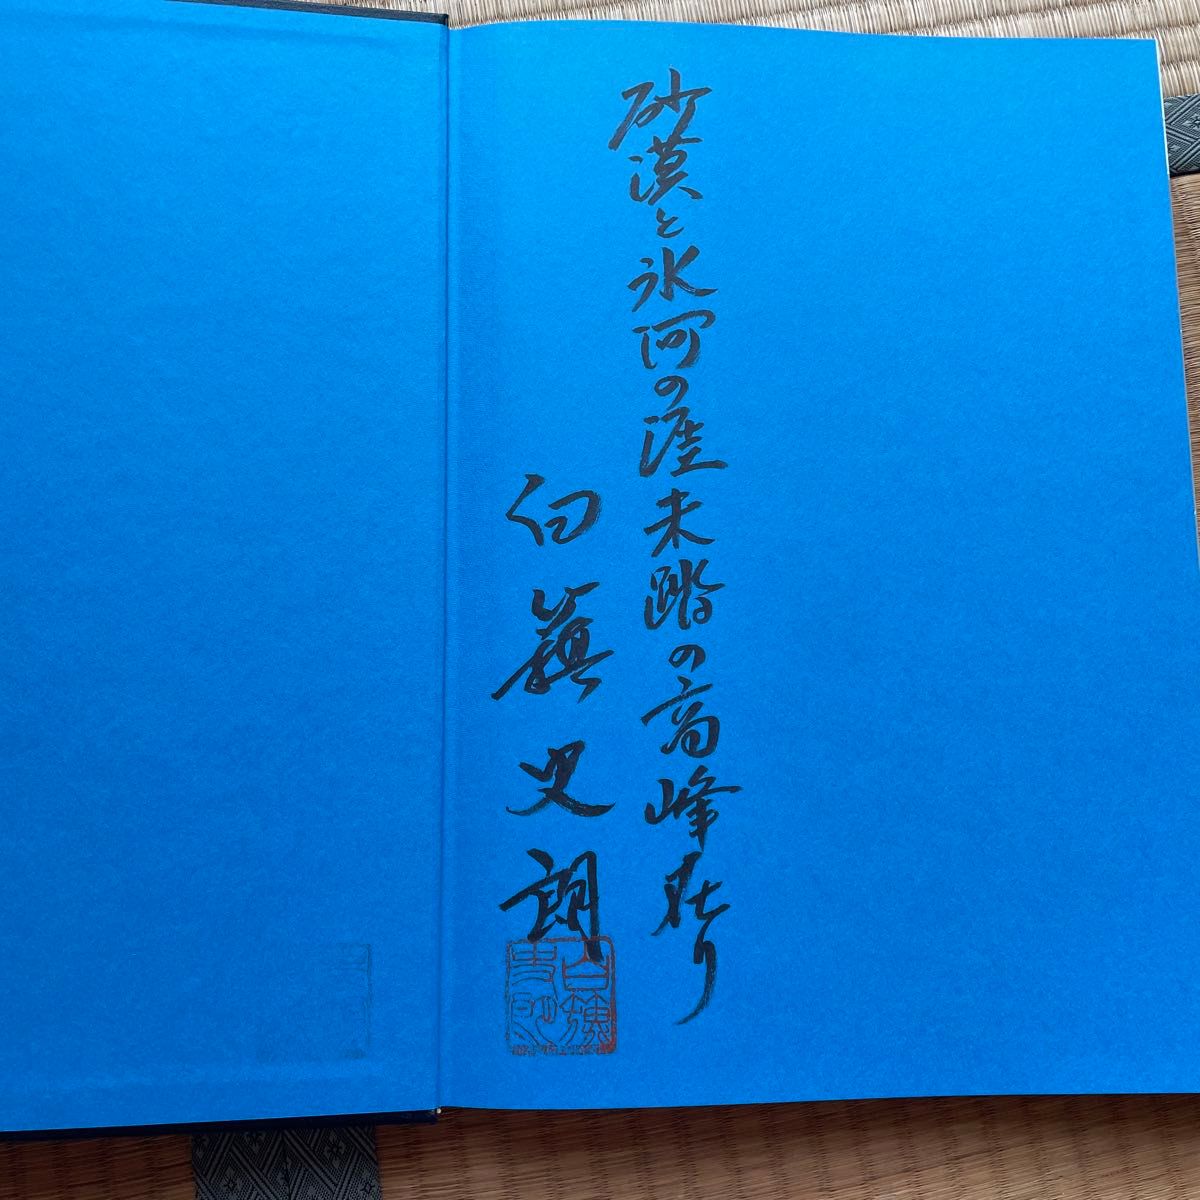 砂漠と氷河の涯未踏の高峰在り
白籏史朗
白籏史朗